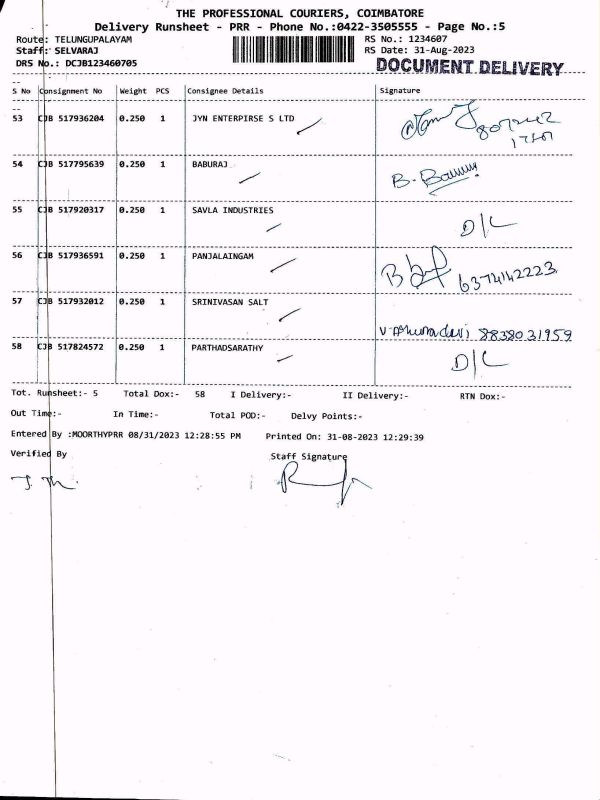 THE PROFESSIONAL COURIERS, COIMBATORE
Delivery Runsheet - PRR - Phone No.:0422-3505555 - Page No.:5
Route: TELUNGUPALAYAM RS No.: 1234607
Staff: SELVARAJ RS Date: 31-Aug-2023
DRS No.: DCJB123460705 DOCUMENT DELIVERY
S No Consignment No Weight PCS Consignee Details Signature
53 CJB 517936204 0.250 1 JYN ENTERPIRSE S LTD
54 CJB 517795639 0.250 1 BABURAJ B.
55 CJB 517920317 0.250 1 SAVLA INDUSTRIES D/L
56 CJB 517936591 0.250 1 PANJALAINGAM 6374142223
57 CJB 517932012 0.250 1 SRINIVASAN SALT 8838031959
58 CJB 517824572 0.250 1 PARTHADSARATHY D/L
Tot. Runsheet:- 5 Total Dox:- 58 I Delivery:- II Delivery:- RTN Dox:-
Out Time:- In Time:- Total POD:- Delvy Points:-
Entered By :MOORTHYPRR 08/31/2023 12:28:55 PM Printed On: 31-08-2023 12:29:39
Verified By Staff Signature